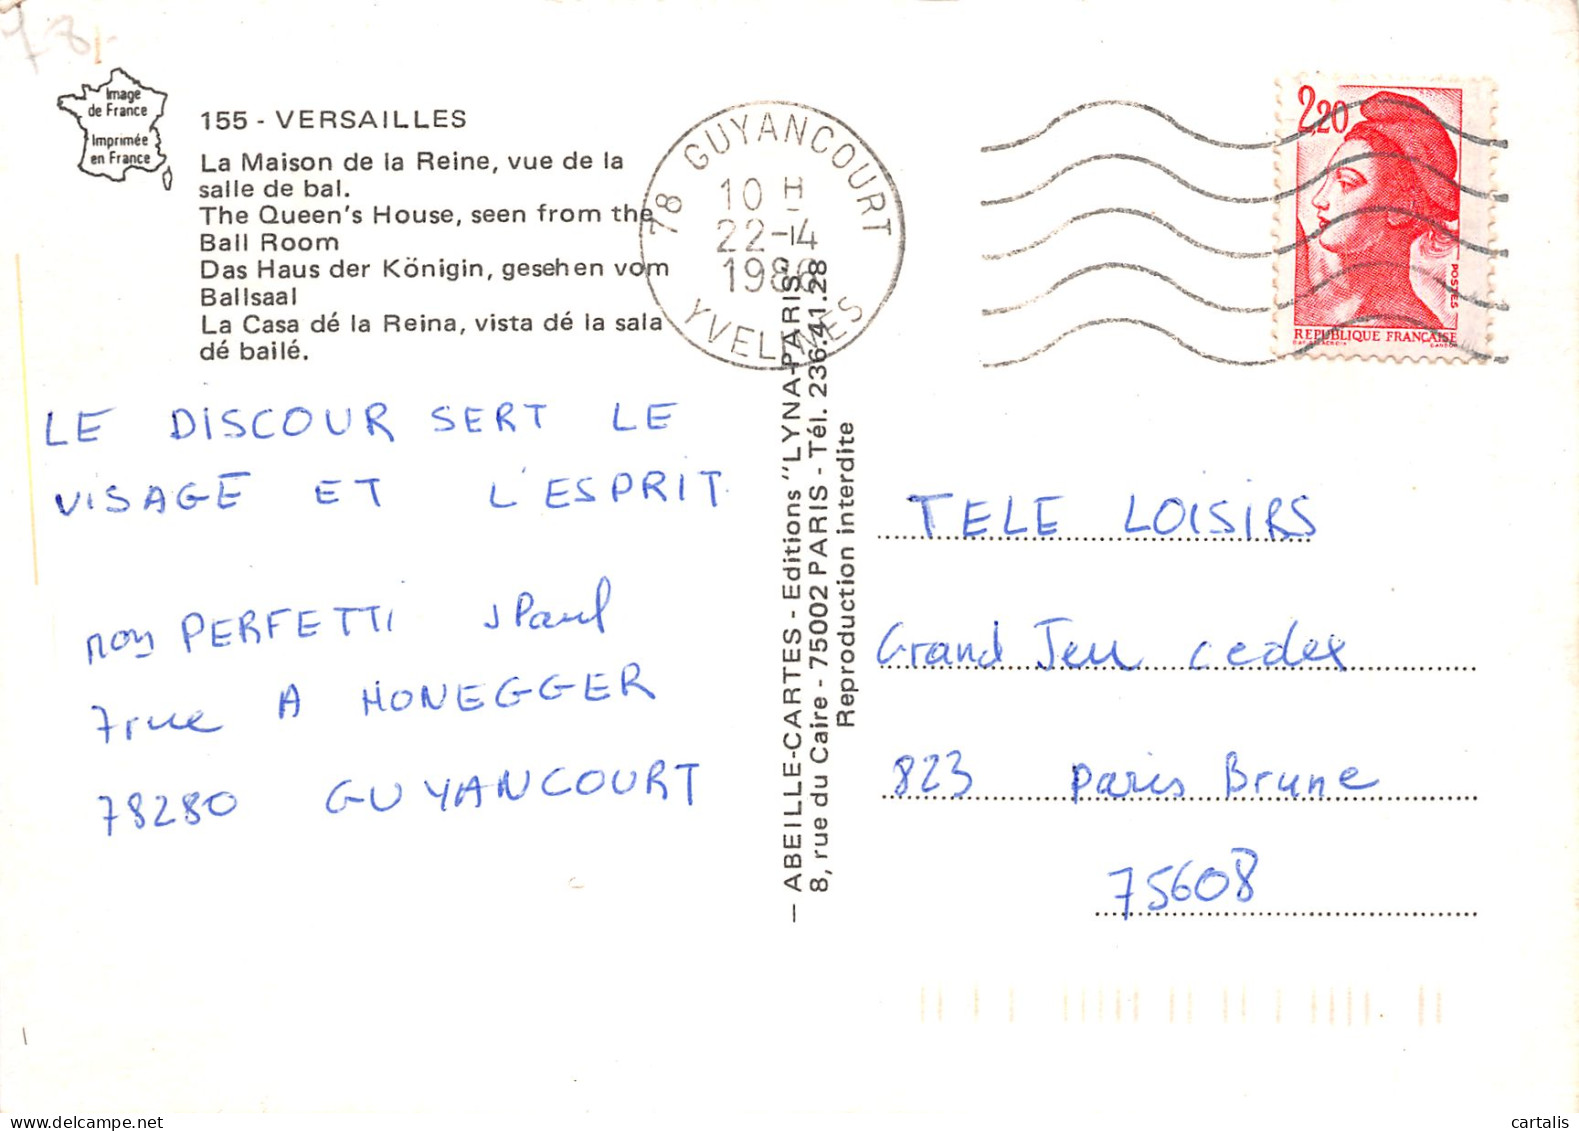 78
Image
de France
Imprimée
en France
155 - VERSAILLES
La Maison de la Reine, vue de la
salle de bal.
The Queen's House, seen from the
Ball Room
Das Haus der Königin, gesehen vom
Ballsaal
La Casa dé la Reina, vista dé la sala
dé bailé.
78 GUYANCOURT
10 H
22-4
1988
YVELINES
2,20
POSTES
REPUBLIQUE FRANÇAISE
LE DISCOUR SERT LE
VISAGE ET L'ESPRIT
PERFETTI JPaul
7 rue A HONEGGER
78280 GUYANCOURT
— ABEILLE-CARTES - Editions "LYNA-PARIS"
8, rue du Caire - 75002 PARIS - Tél. 236.41.28
Reproduction interdite
TELE LOISIRS
Grand Jeu cedex
823 Paris Brune
75608
delcampe.net
cartalis